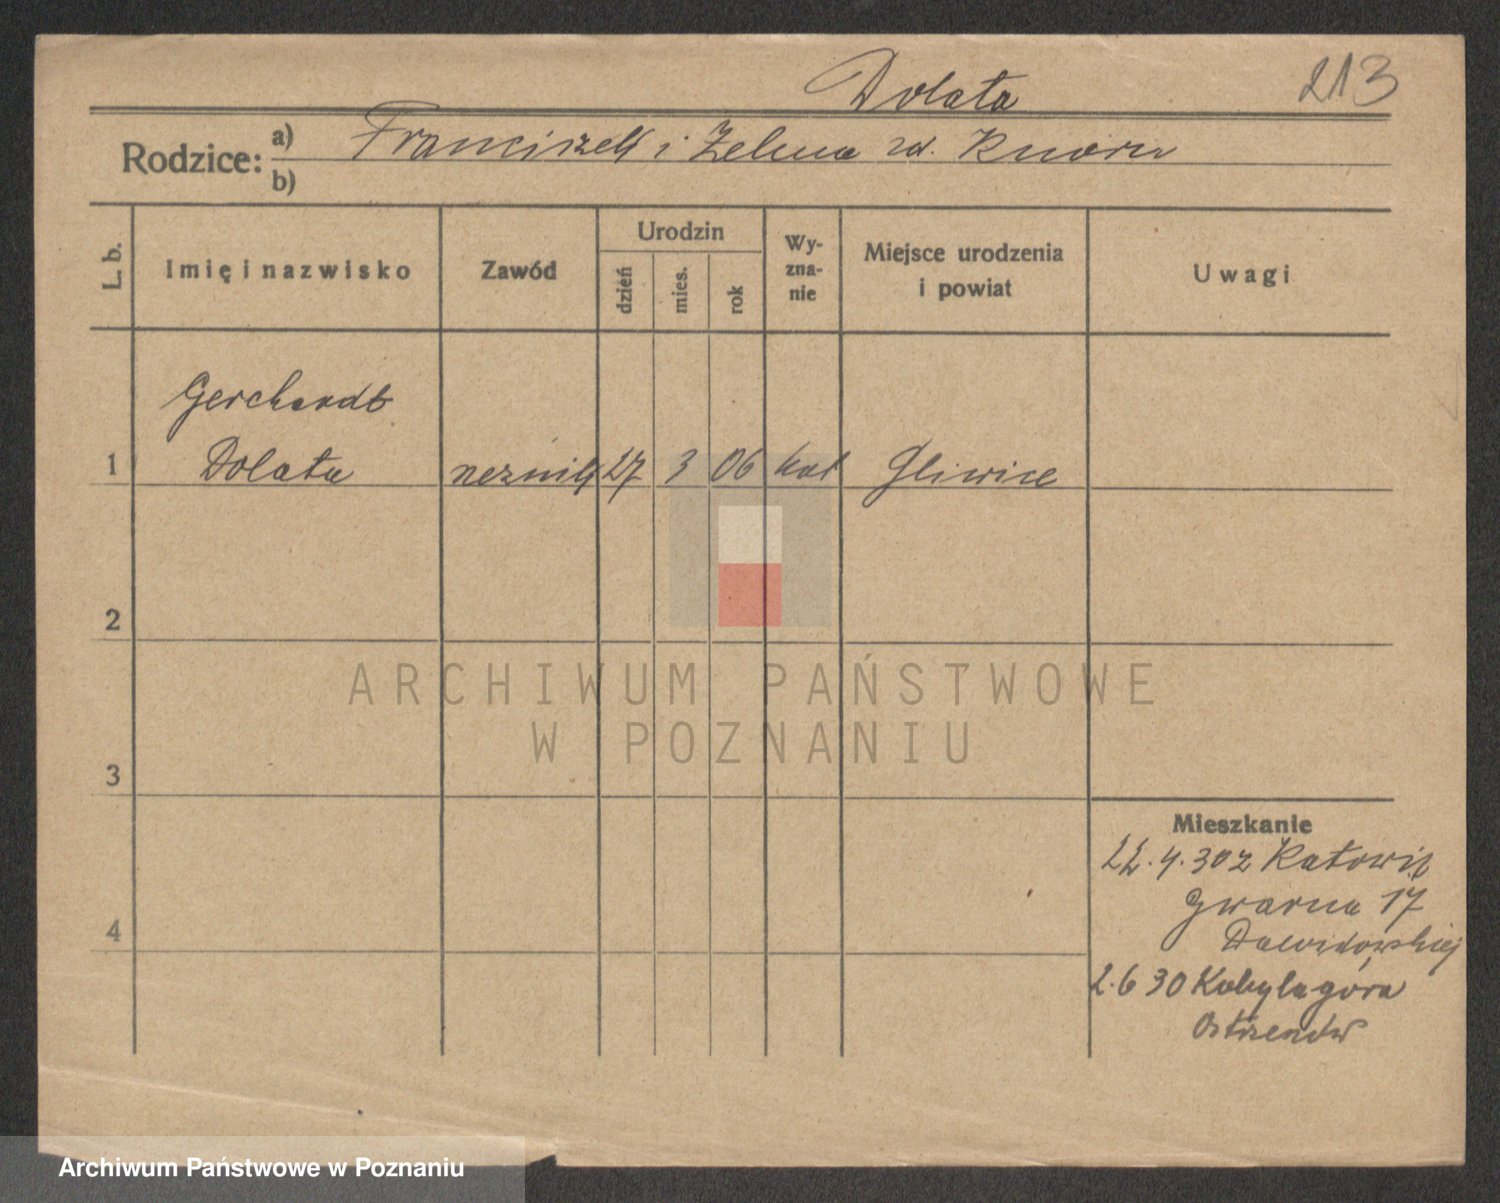 Dolata
213
Rodzice: a) Franciszek i Zelma zd. Knorn
b)
L. b.
Imię i nazwisko
Zawód
Urodzin
dzień
mies.
rok
Wy-
zna-
nie
Miejsce urodzenia
i powiat
Uwagi
Gerchardt
1 Dolata rzeźnik 27 3 06 kat Gliwice
2
3
4
Mieszkanie
22.4.30 z Katowic
Gwarna 17
Dawidowskiej
2.6 30 Kobylagóra
Ostrzeszów
ARCHIWUM PAŃSTWOWE
W POZNANIU
Archiwum Państwowe w Poznaniu